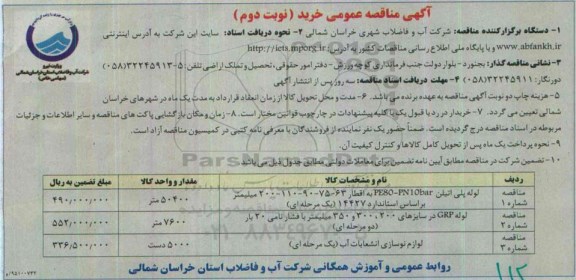 آگهی مناقصه عمومی خرید (نوبت دوم)
وزارت نیرو
شرکت آب و فاضلاب استان خراسان شمالی
(سهامی خاص)
۱- دستگاه برگزارکننده مناقصه: شرکت آب و فاضلاب شهری خراسان شمالی ۲- نحوه دریافت اسناد: سایت این شرکت به آدرس اینترنتی
www.abfankh.ir و یا پایگاه ملی اطلاع رسانی مناقصات کشور به آدرس: http://iets.mporg.ir
۳- نشانی مناقصه گذار: بجنورد - بلوار دولت جنب فرمانداری کوچه ورزش - دفتر امور حقوقی، تحصیل و تملک اراضی تلفن: ۵-۳۲۲۴۵۹۱۳ (۰۵۸)
دورنگار: ۳۲۲۴۵۹۱۱ (۰۵۸) ۴- مهلت دریافت اسناد مناقصه: سه روز پس از انتشار آگهی
۵- هزینه چاپ دو نوبت آگهی مناقصه به عهده برنده می باشد. ۶- مدت و محل تحویل کالا از زمان انعقاد قرارداد به مدت یک ماه در شهرهای خراسان
شمالی تعیین می گردد. ۷- خریدار در رد یا قبول یک یا کلیه پیشنهادات در چارچوب قوانین مختار است. ۸- زمان و مکان بازگشایی پاکت های مناقصه و سایر اطلاعات و جزئیات
مربوطه در اسناد مناقصه درج گردیده است. ضمناً حضور یک نفر نماینده از فروشندگان با معرفی نامه کتبی در کمیسیون مناقصه آزاد است.
۹- نحوه پرداخت یک ماه پس از تحویل کامل کالاها و کنترل کیفیت آن.
۱۰- تضمین شرکت در مناقصه مطابق آیین نامه تضمین برای معاملات دولتی مطابق جدول ذیل می باشد
ردیف نام و مشخصات کالا مقدار و واحد کالا مبلغ تضمین به ریال
مناقصه شماره ۱ لوله پلی اتیلن PE80-PN10bar به اقطار ۶۳-۷۵-۹۰-۱۱۰-۲۰۰ میلیمتر براساس استاندارد ۱۴۴۲۷ (یک مرحله ای) ۵۰۴۰۰ متر ۴۹۰,۰۰۰,۰۰۰
مناقصه شماره ۲ لوله GRP در سایزهای ۲۰۰، ۳۰۰ و ۳۵۰ میلیمتر با فشار نامی ۲۰ بار (دو مرحله ای) ۷۶۰۰ متر ۵۵۲,۰۰۰,۰۰۰
مناقصه شماره ۳ لوازم نوسازی انشعابات آب (یک مرحله ای) ۵۰۰۰ دست ۳۳۶,۵۰۰,۰۰۰
روابط عمومی و آموزش همگانی شرکت آب و فاضلاب استان خراسان شمالی